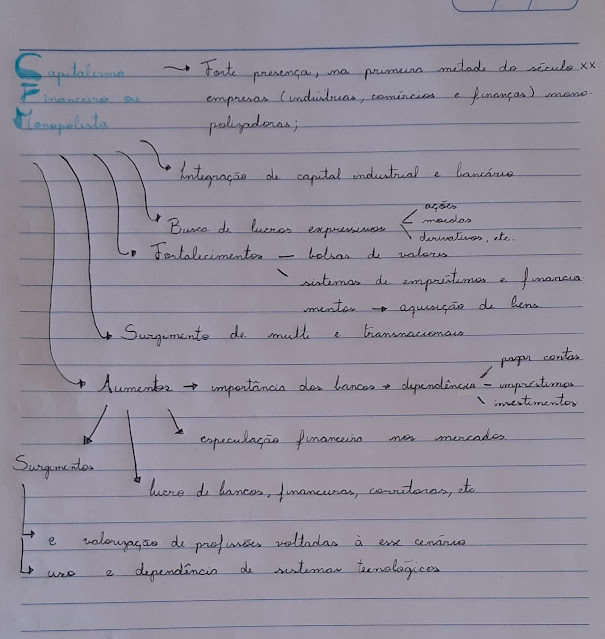 Capitalismo → Forte presença, na primeira metade do século XX
Financeiro ou empresas (indústrias, comércios e finanças) mono-
Monopolista polizadoras;
Integração de capital industrial e bancário
ações
Busca de lucros expressivos moedas
derivativos, etc.
Fortalecimentos — bolsas de valores
sistemas de empréstimos e financia
mentos → aquisição de bens
Surgimento de multi e transnacionais
pagar contas
Aumentos → importância dos bancos → dependência – empréstimos
investimentos
especulação financeira nos mercados
Surgimentos
lucro de bancos, financeiras, corretoras, etc.
e valorização de profissões voltadas à esse cenário
uso e dependência de sistemas tecnológicos